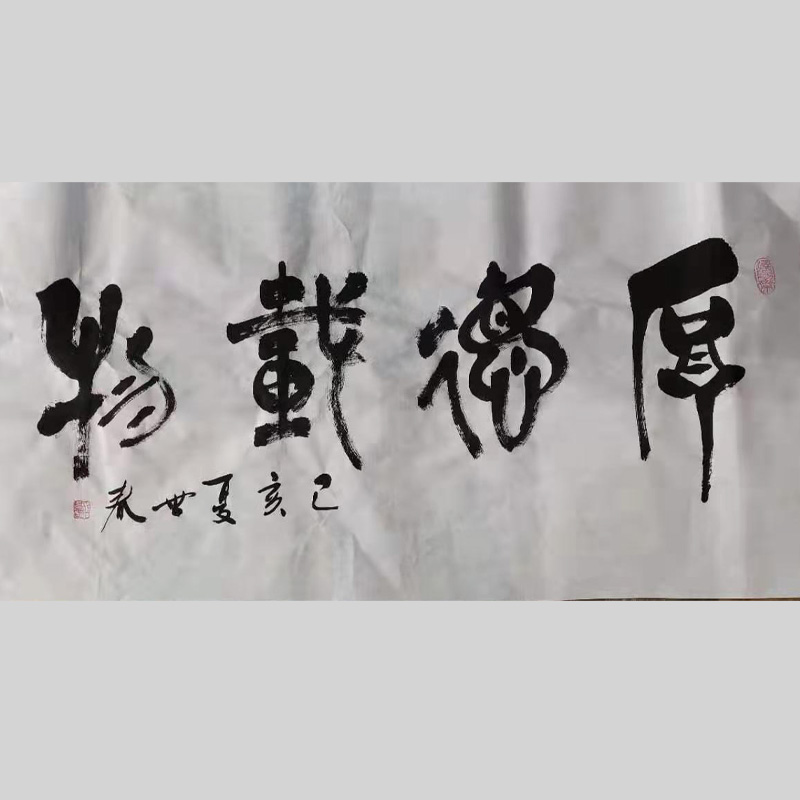 厚德載物
己亥夏世春